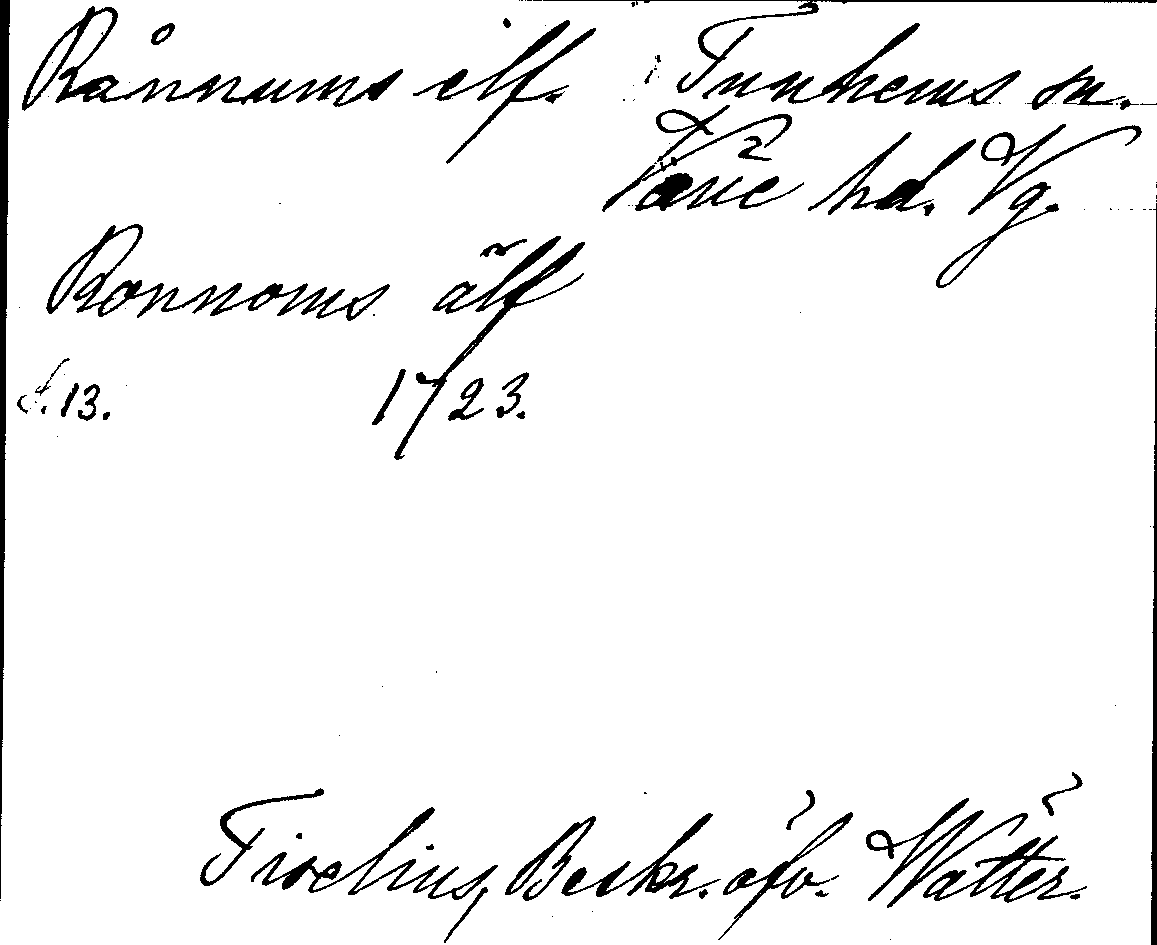 Rånnums elf. Tunhems sn.
Väne hd. Vg.
Ronnoms älf
s. 13. 1723.
Tiselius, Beskr. öfv. Wätter.